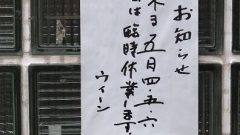 お知らせ
五日四・五・六
は臨時休業します。
ウィーン